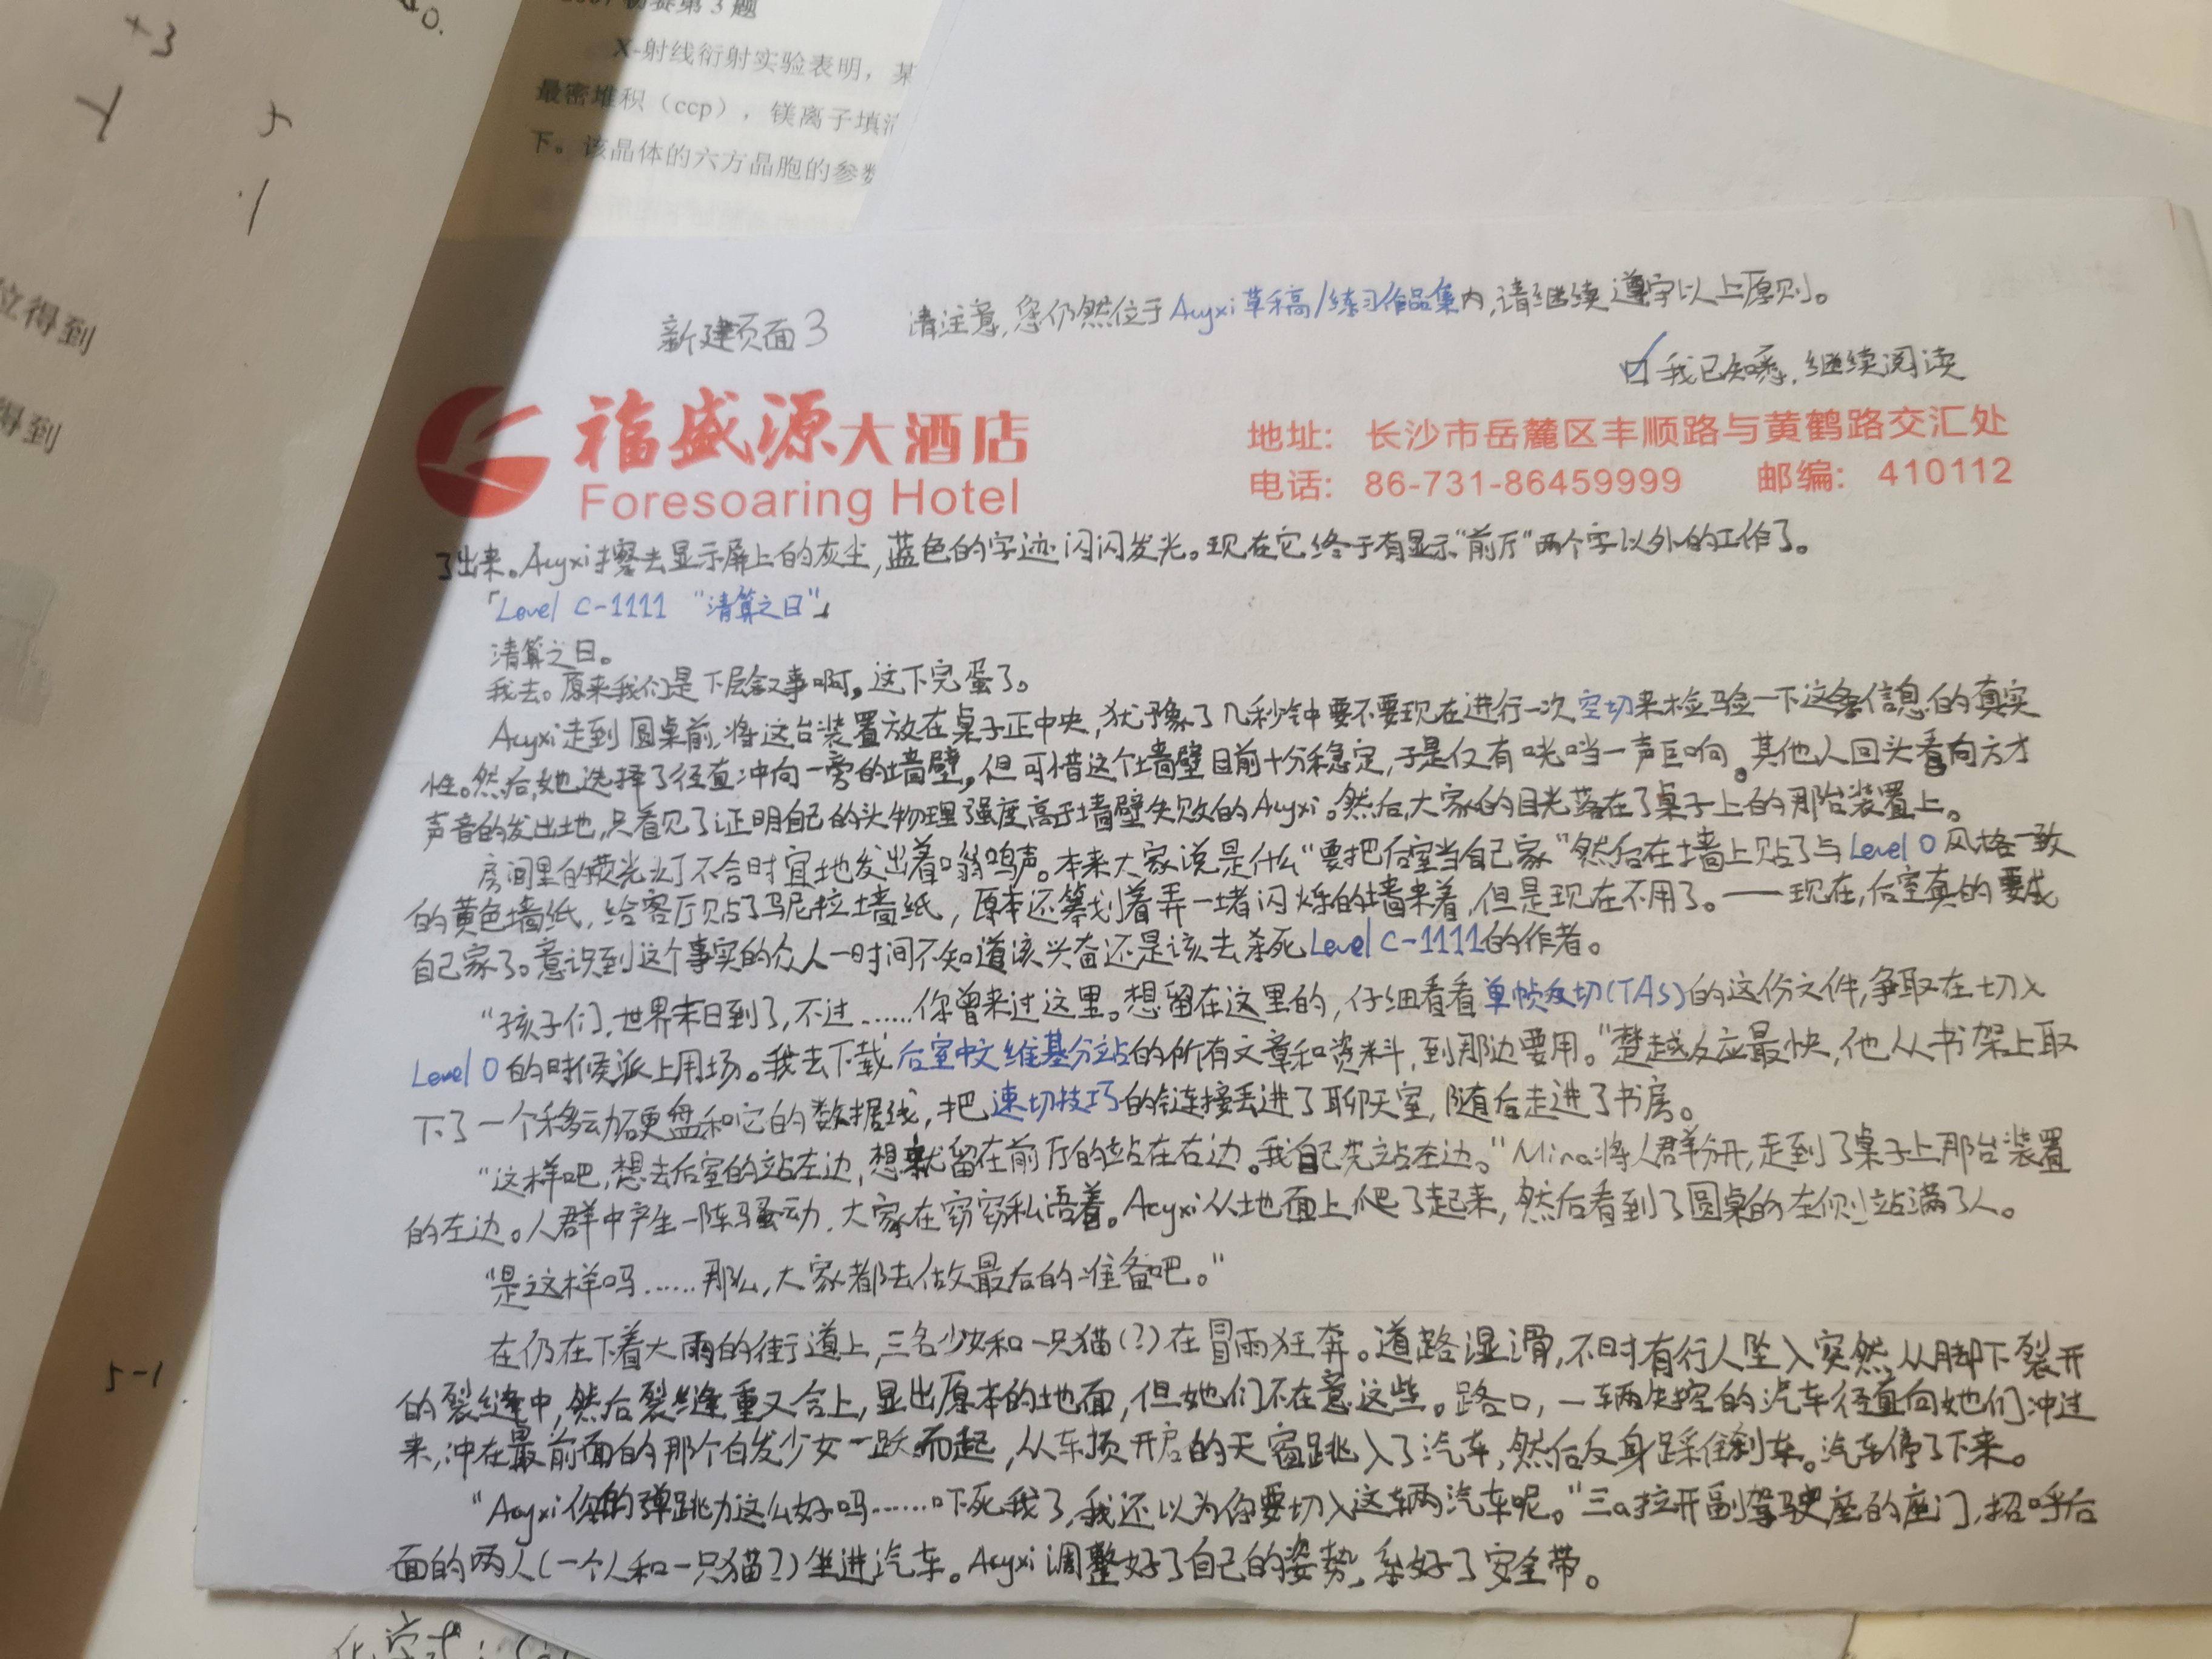 +3
5-1
位得到
得到
初赛第 3 题
X-射线衍射实验表明，某
最密堆积（ccp），镁离子填
下。该晶体的六方晶胞的参数
新建页面3
请注意,您仍然位于Acyxi草稿/练习作品集内,请继续遵守以上原则。
我已知悉,继续阅读
福盛源大酒店
Foresoaring Hotel
地址： 长沙市岳麓区丰顺路与黄鹤路交汇处
电话： 86-731-86459999 邮编： 410112
了出来。Acyxi擦去显示屏上的灰尘,蓝色的字迹闪闪发光。现在它终于有显示“前厅”两个字以外的工作了。
「Level C-1111 “清算之日”」
清算之日。
我去。原来我们是下层叙事啊。这下完蛋了。
Acyxi走到圆桌前,将这台装置放在桌子正中央,犹豫了几秒钟要不要现在进行一次空切来检验一下这条信息的真实
性。然后,她选择了径直冲向一旁的墙壁。但可惜这个墙壁目前十分稳定,于是仅有咣当一声巨响。其他人回头看向方才
声音的发出地,只看见了证明自己的头物理强度高于墙壁失败的Acyxi。然后,大家的目光落在了桌子上的那台装置上。
房间里的荧光灯不合时宜地发出着嗡鸣声。本来大家说是什么“要把后室当自己家”然后在墙上贴了与Level 0风格一致
的黄色墙纸,给客厅贴了马尼拉墙纸,原本还筹划着弄一堵闪烁的墙来着,但是现在不用了。——现在,后室真的要成
自己家了。意识到这个事实的众人一时间不知道该兴奋还是该去杀死Level C-1111的作者。
“孩子们,世界末日到了,不过……你曾来过这里。想留在这里的,仔细看看单帧反切(TAS)的这份文件,争取在切入
Level 0的时候派上用场。我去下载后室中文维基分站的所有文章和资料,到那边要用。”楚越反应最快,他从书架上取
下了一个移动硬盘和它的数据线,把速切技巧的链接丢进了聊天室,随后走进了书房。
“这样吧,想去后室的站左边,想就留在前厅的站在右边。我自己先站左边。”Mina将人群分开,走到了桌子上那台装置
的左边。人群中产生一阵骚动,大家在窃窃私语着。Acyxi从地面上爬了起来,然后看到了圆桌的左侧站满了人。
“是这样吗……那么,大家都去做最后的准备吧。”
在仍在下着大雨的街道上,三名少女和一只猫(?)在冒雨狂奔。道路湿滑,不时有行人坠入突然从脚下裂开
的裂缝中,然后裂缝重又合上,显出原本的地面,但她们不在意这些。路口,一辆失控的汽车径直向她们冲过
来,冲在最前面的那个白发少女一跃而起,从车顶开启的天窗跳入了汽车,然后反身踩住刹车。汽车停了下来。
“Acyxi你的弹跳力这么好吗……吓死我了,我还以为你要切入这辆汽车呢。”三a拉开副驾驶座的座门,招呼后
面的两人(一个人和一只猫?)坐进汽车。Acyxi调整好了自己的姿势,系好了安全带。
化学式: